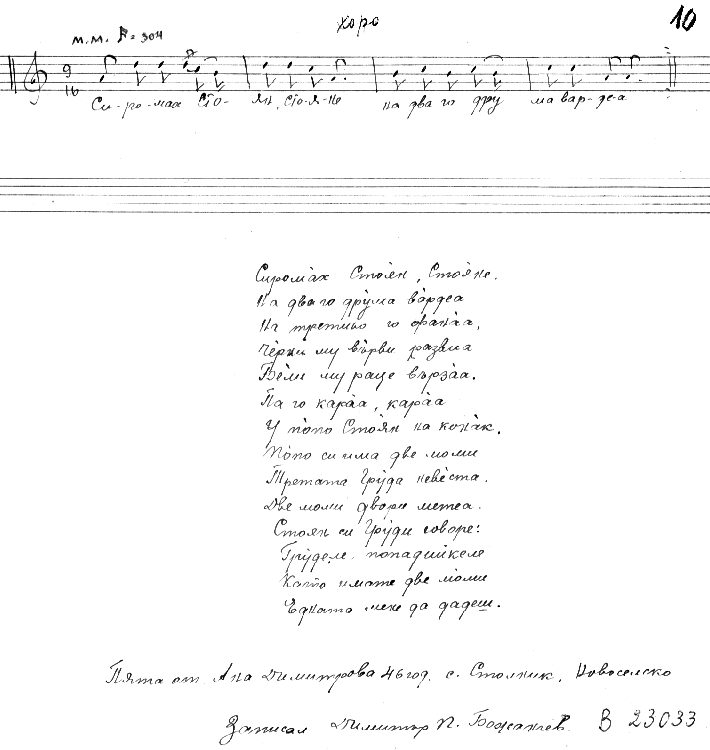 хоро
10
М.М. ♪ = 304
9
16
Си-ро-мах Сто- ян, Сто-я-не на два го дру ма вар-де-а
Сирома̀х Стоя̀н, Стоя̀не.
На два го дру̀ма ва̀рдеа
На третьо го фана̀а,
Чѐрни му върви развиа
Бѐли му раце върза̀а.
Па го кара̀а, кара̀а
У по̀по Стоя̀н на кона̀к.
По̀по си има две моми
Третата Гру̀да невѐста.
Две моми двори метеа.
Стоян си Гру̀ди говоре:
Гру̀деле, попадийкеле
Като̀ имате две мо̀ми
Ѐдната мене да дадеш.
Пята от Ана Димитрова 46 год. с. Столник, Новоселско
Записал Димитър П. В 23033